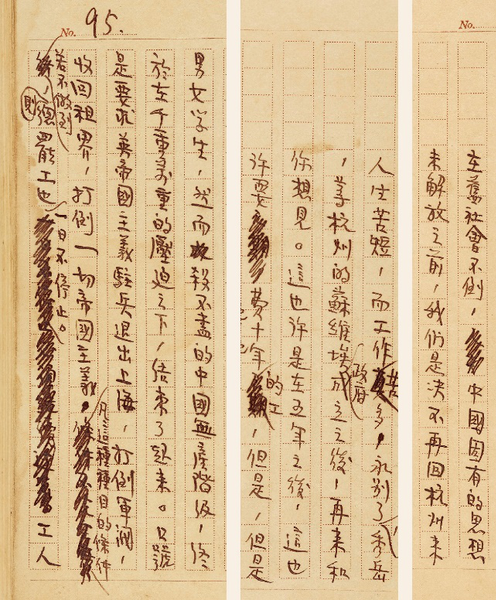 No.
在舊社會不倒，中國固有的思想
未解放之前，我们是决不再回杭州来
人生苦短，而工作苦多，永别了
，等杭州的蘇維埃政府成立之後，再来和
你想見。這也许是在五年之後，這也
许要费十年的工，但是，但是
No. 95.
男女学生，然而殺不盡的中國無產階級，终
於在千重萬重的壓迫之下，结束了起来。口號
是要求英帝國主義駐兵退出上海，打倒軍阀，
收回租界，打倒一切帝國主義。凡這種種目的條件
若不做到，則總罷工也一日不停止。工人